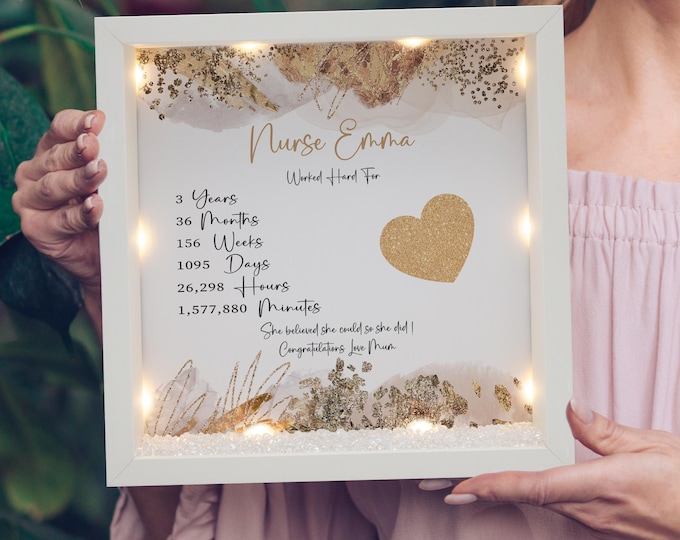 Nurse Emma
Worked Hard For
3 Years
36 Months
156 Weeks
1095 Days
26,298 Hours
1,577,880 Minutes
She believed she could so she did !
Congratulations Love Mum